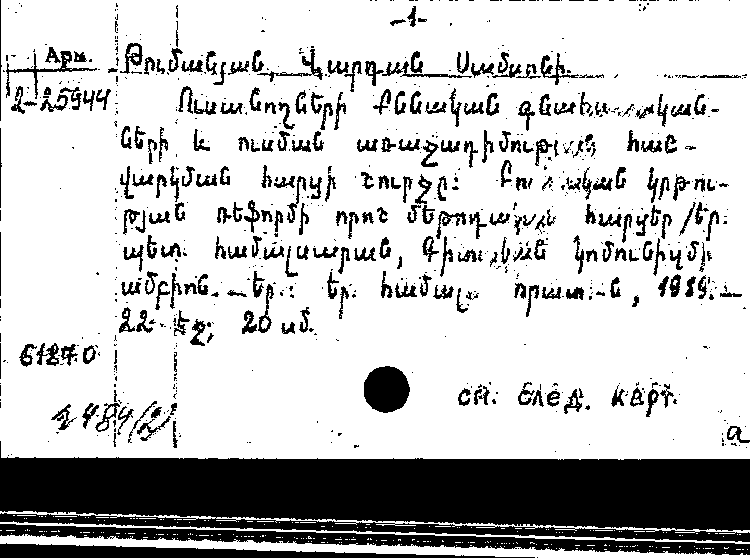 -1-
Арм. Թումանյան, Վարդան Սամսոնի.
2-25944 Ուսանողների քննական գնահատական-
ների և ուսման առաջադիմության հաշ-
վարկման հարցի շուրջը: Բուհական կրթու-
թյան ռեֆորմի որոշ մեթոդական հարցեր /Եր.
պետ. համալսարան, Գիտական կոմունիզմի
ամբիոն. - Եր.: Եր. համալս. հրատ.-ն, 1989. -
22 էջ; 20 սմ.
61870
2484(2) см. след. карт.
а